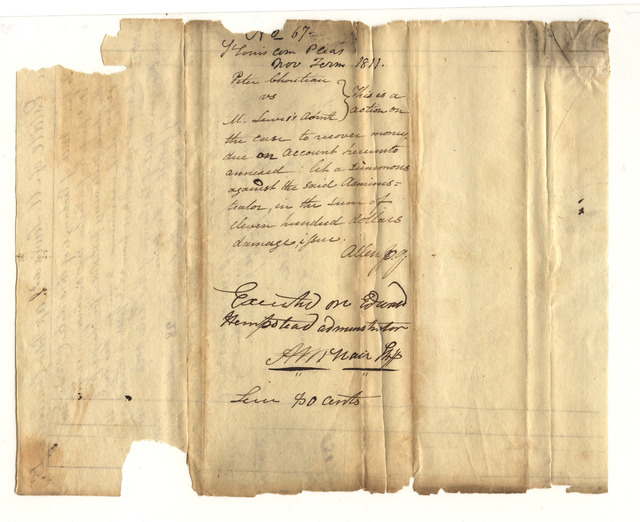 No 67
St Louis Com Pleas
Nov Term 1811.
Peter Chouteau
vs
M. Lewis's Admt
This is a
action on
the case to recover money
due on account hereunto
annexed: let a summons
against the said Adminis=
trator, in the sum of
eleven hundred dollars
damage, issue.
Allen
Executed on Edward
Hempstead administrator
A McNair Shff
50 cents